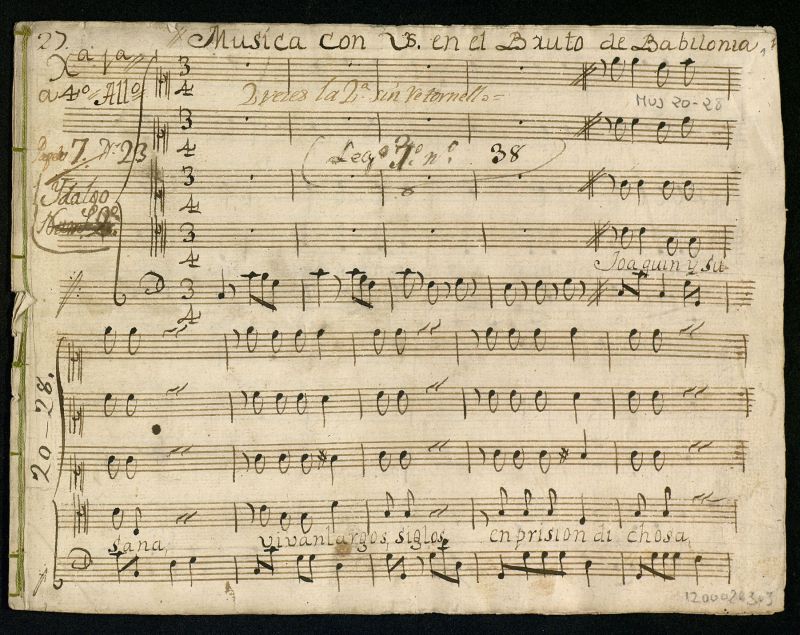 27. Musica con Vs. en el Bruto de Babilonia
Xa. 1a.
a 4o. Allo.
3 4
2 veces la 2a. sin Retornello
MUS 20-28
7. No. 23
Lego. no. 38
Ydalgo
Joaquin y su
20-28.
sana, vivan largos, siglos, en prision di chosa,